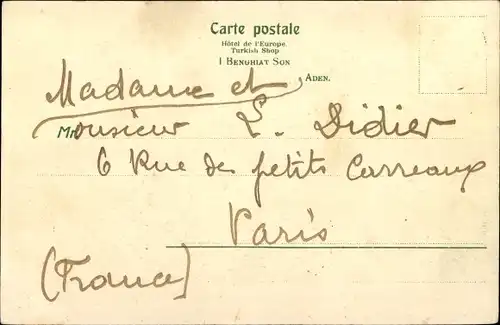 Carte postale
Hôtel de l'Europe.
Turkish Shop
I BENGHIAT SON
ADEN.
Madame et
Monsieur L. Didier
6 Rue des petits Carreaux
Paris
(France)